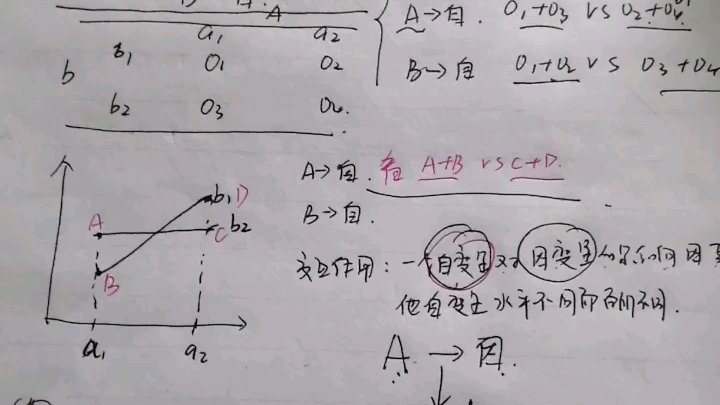 A
a₁ a₂
b b₁ O₁ O₂
b₂ O₃ O₄.
A→自. O₁+O₃ VS O₂+O₄.
B→自 O₁+O₂ VS O₃+O₄
A→自. 看 A+B VS C+D.
B→自.
A B b₁ D C b₂
a₁ a₂
交互作用：一个自变量对因变量的影响因其
他自变量水平不同而有所不同.
A→因.